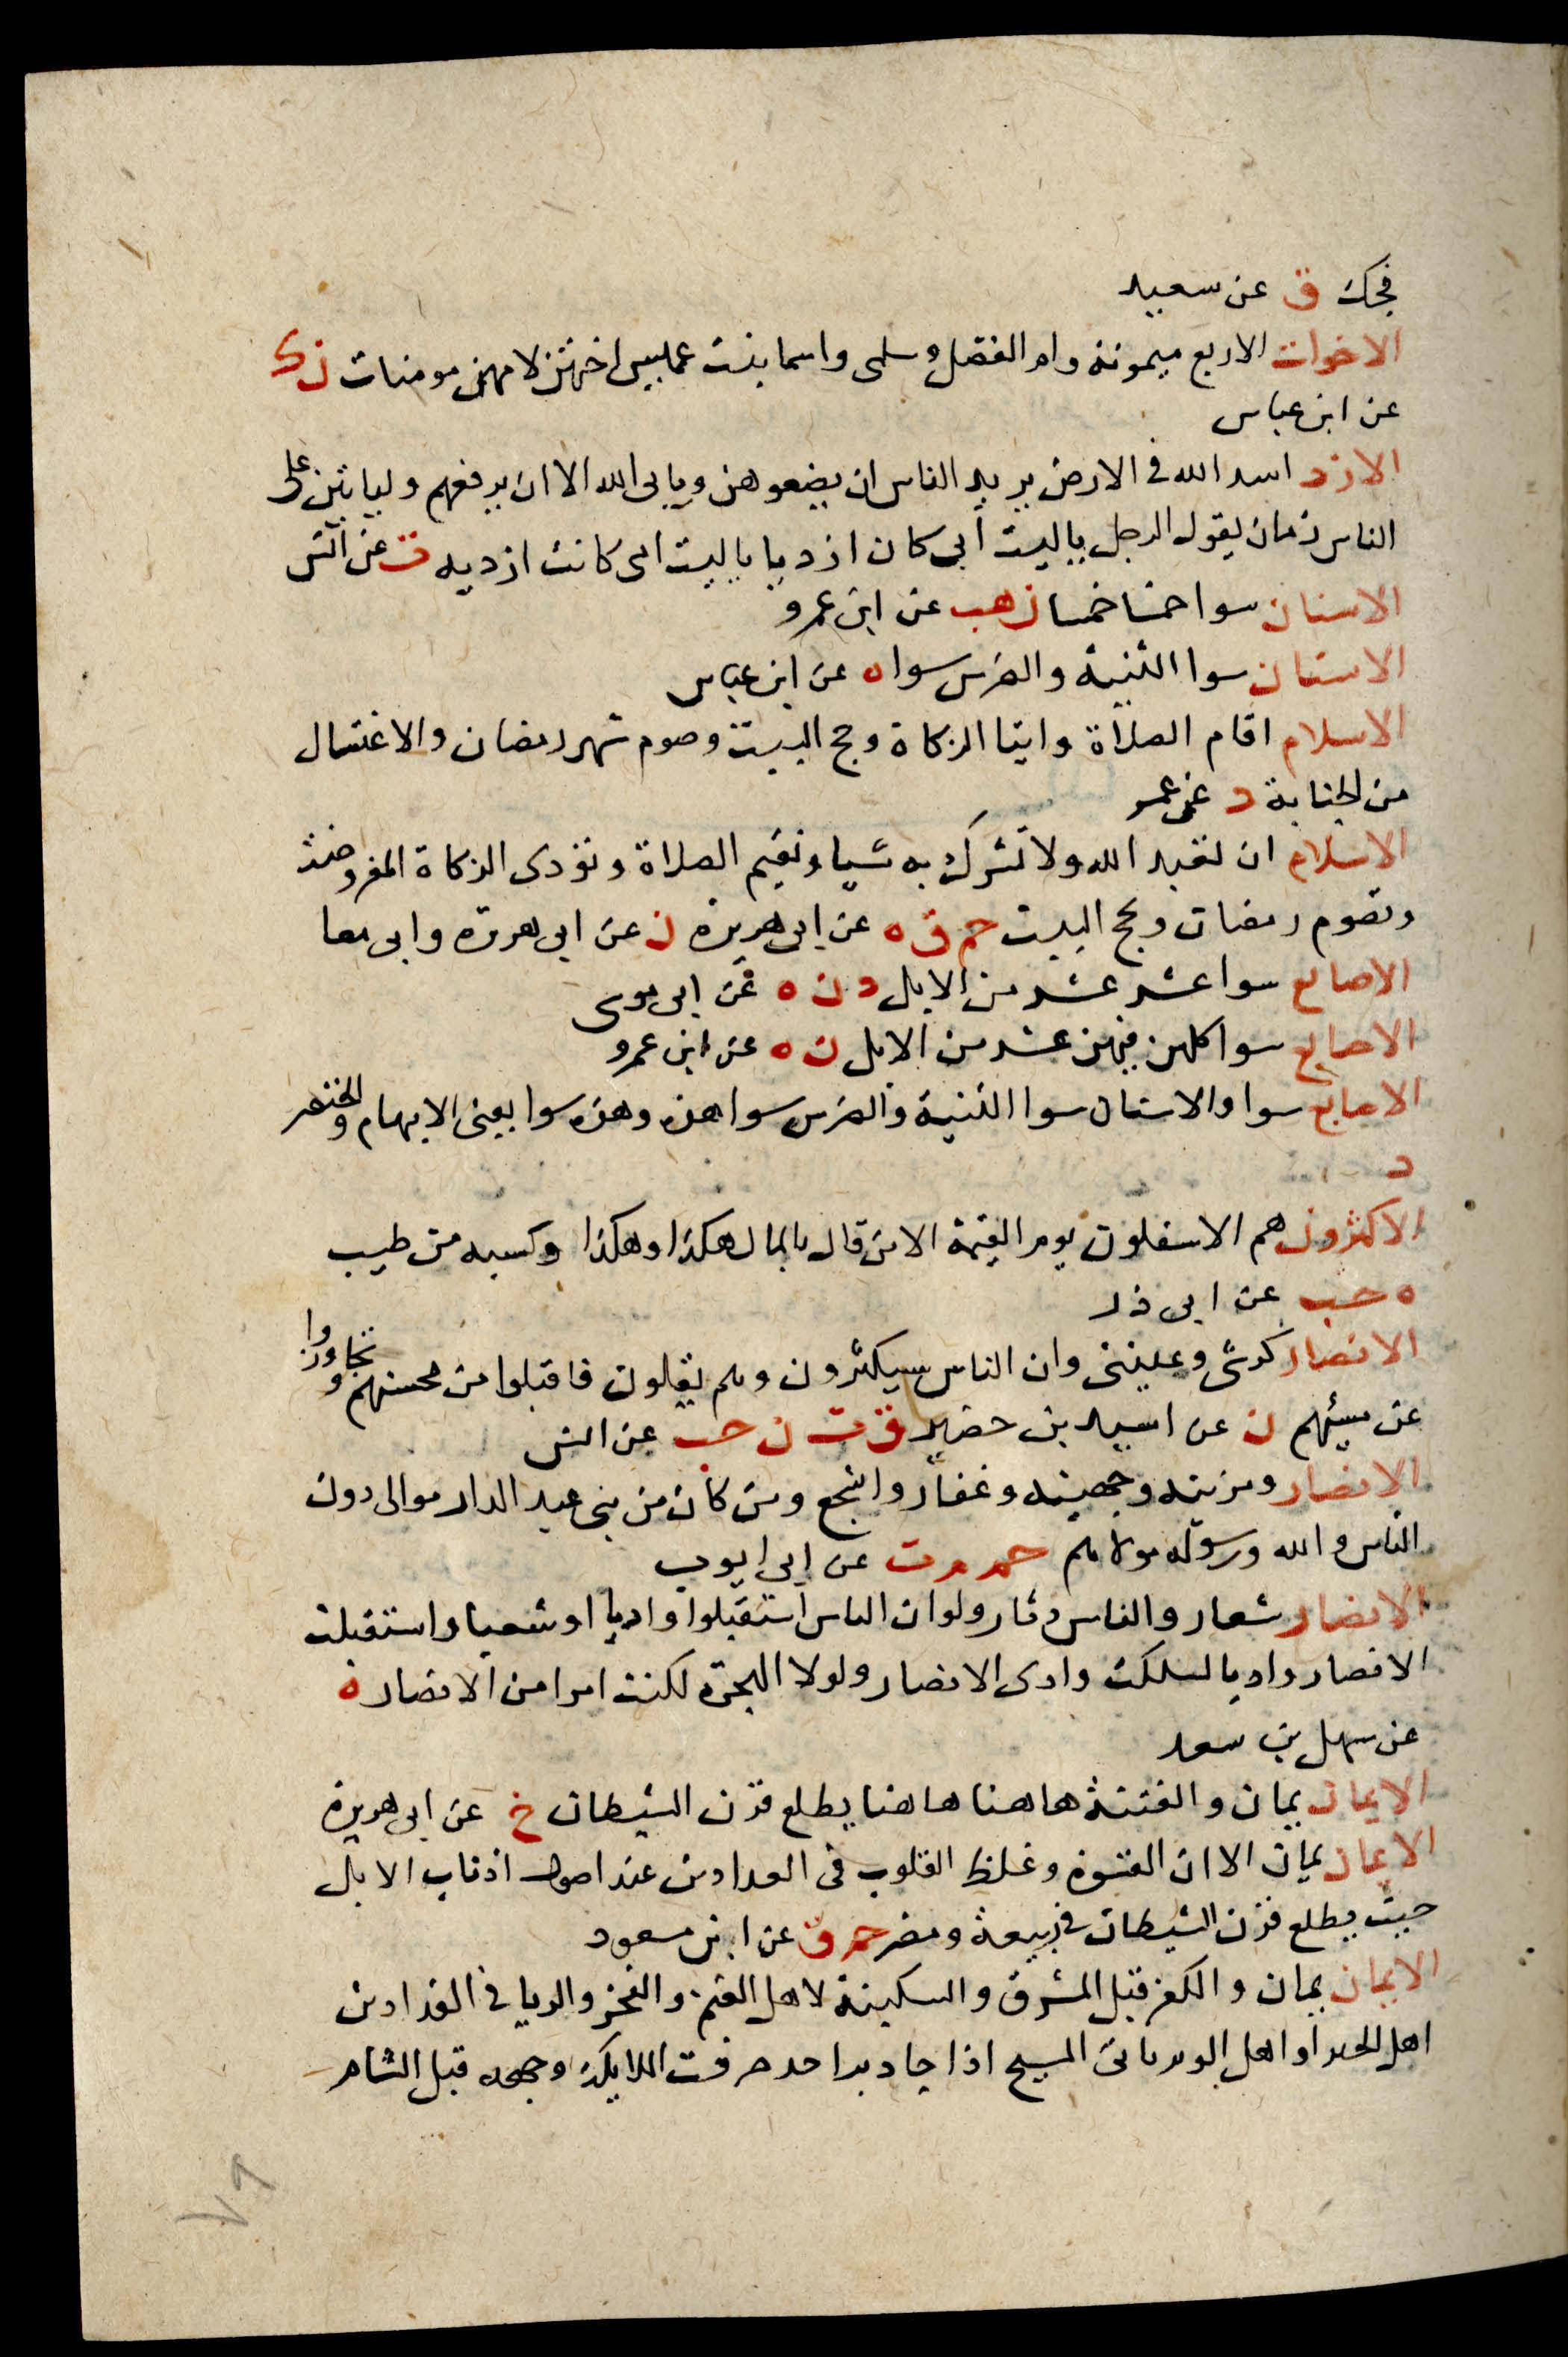 فحك ق عن سعيد
الاخوات الاربع ميمونة وام الفضل وسلمى واسما بنت عميس اختهن لامهن مومنات ن ك
عن ابن عباس
الازد اسد الله فى الارض يريد الناس ان يضعوهن ويابى الله الا ان يرفعهم ولياتين على
الناس زمان يقول الرجل ياليت ابى كان ازديا ياليت امى كانت ازديه ت عن انس
الاسنان سوا خمسا خمسا ن هب عن ابن عمرو
الاسنان سوا الثنية والضرس سوا ه عن ابن عباس
الاسلام اقام الصلاة وايتا الزكاة وحج البيت وصوم شهر رمضان والاغتسال
من الجنابة د عن عمر
الاسلام ان تعبد الله ولا تشرك به شيا وتقيم الصلاة وتؤدى الزكاة المفروضة
وتصوم رمضان وتحج البيت حم ق ه عن ابى هريرة ن عن ابى هريرة وابى معا
الاصابع سوا عشر عشر من الابل د ن ه عن ابى موسى
الاصابع سوا كلهن فيهن عشر من الابل ن ه عن ابن عمرو
الاصابع سوا والاسنان سوا الثنية والضرس سوا هذه وهذه سوا يعنى الابهام والخنصر
د
الاكثرون هم الاسفلون يوم القيمة الا من قال بالمال هكذا وهكذا وكسبه من طيب
ه حب عن ابى ذر
الانصار كرشى وعيبتى وان الناس سيكثرون وهم يقلون فاقبلوا من محسنهم وتجاوزوا
عن مسيئهم ن عن اسيد بن حضير ق ت ن حب عن انس
الانصار ومزينه وجهينه وغفار واشجع ومن كان من بنى عبد الدار موالى دون
الناس والله ورسوله مولاهم حم م ت عن ابى ايوب
الانصار شعار والناس دثار ولو ان الناس استقبلوا واديا او شعبا واستقبلت
الانصار واديا لسلكت وادى الانصار ولولا الهجرة لكنت امرا من الانصار ه
عن سهل بن سعد
الايمان يمان والفتنة هاهنا هاهنا يطلع قرن الشيطان خ عن ابى هريرة
الايمان يمان الا ان القسوة وغلظ القلوب فى الفدادين عند اصول اذناب الابل
حيث يطلع قرن الشيطان فى ربيعة ومضر حم ق عن ابن مسعود
الايمان يمان والكفر قبل المشرق والسكينة لاهل الغنم والفخر والريا فى الفدادين
اهل الخيل واهل الوبر ياتى المسيح اذا جا دبر احد صرفت الملايكة وجهه قبل الشام
٧٩